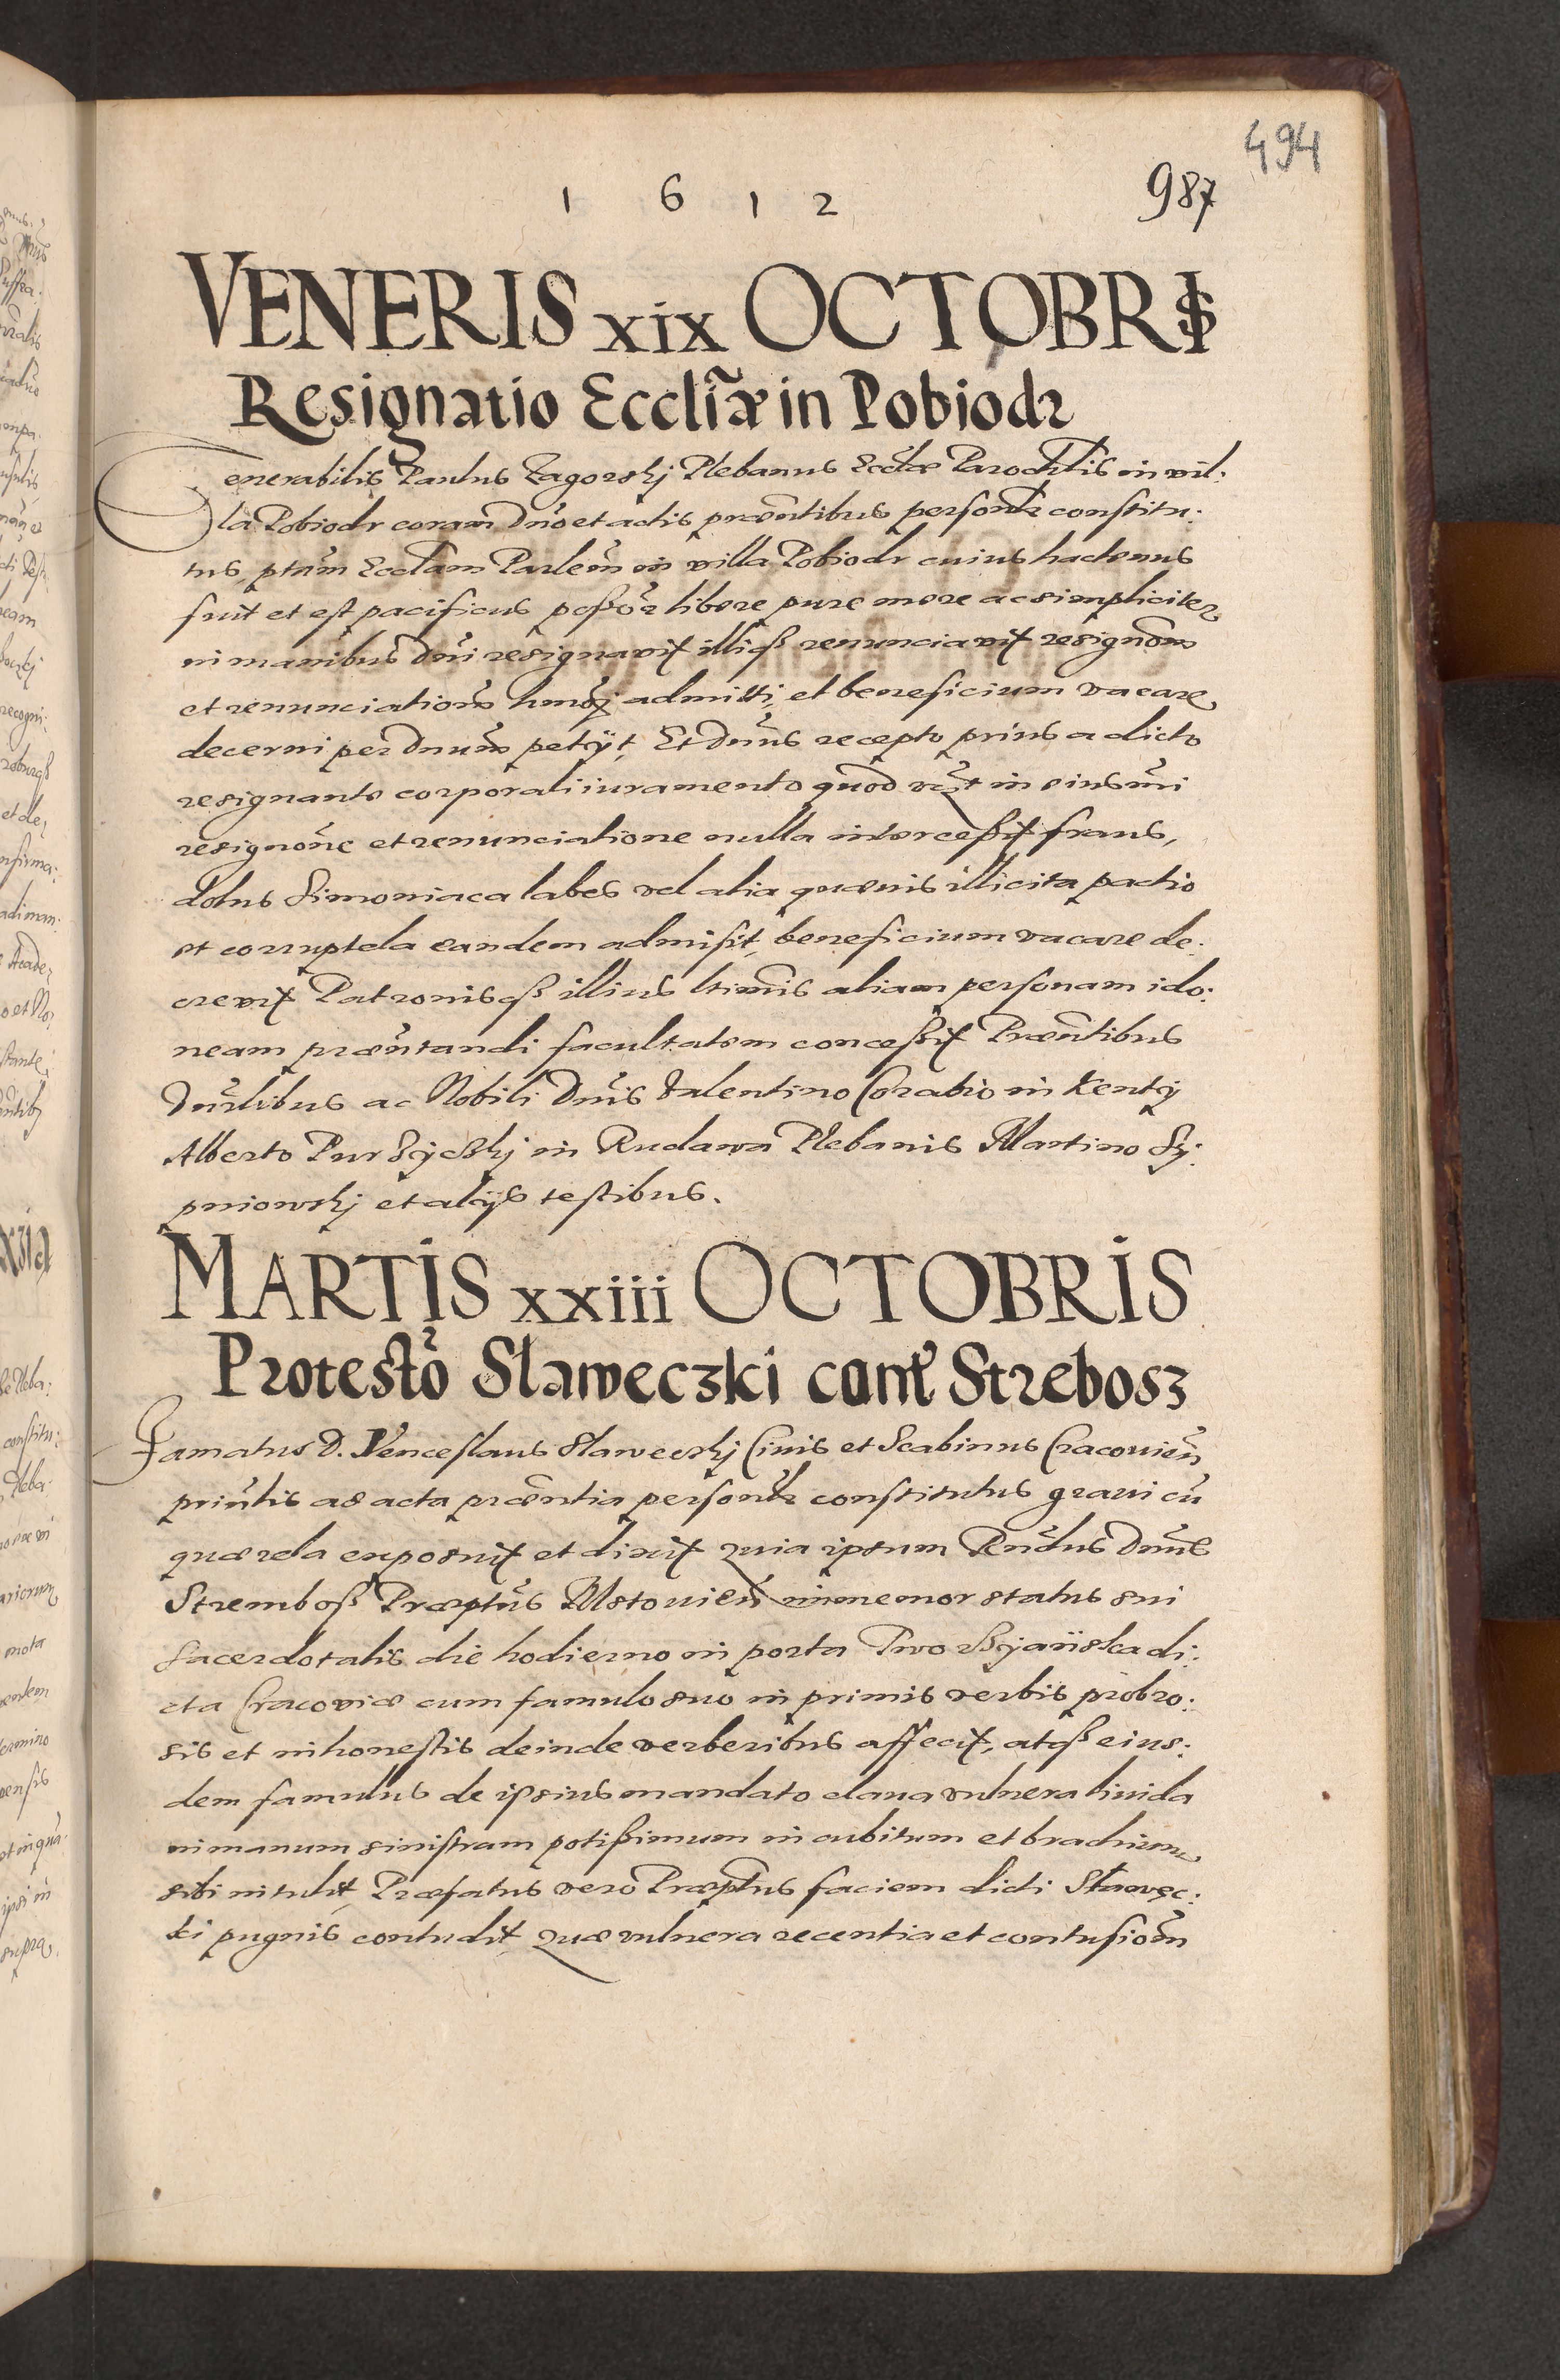 494
1 6 1 2
987
VENERIS xix OCTOBRIS
Resignatio Eccliæ in Pobiodr
Venerabilis Paulus Zagorskj Plebanus Eccliæ Parochlis in vil:
la Pobiodr coram Dno et actis præntibus personlr constitu:
tus, ptam Ecclam Parlem in villa Pobiodr cuius hactenus
fuit et est pacificus poßor libere pure mere ac simpliciter
in manibus Dni resignavit illiqß renunciavit resignom
et renunciationem hmoj admitti, et beneficium vacare
decerni per Dnum petijt, Et Dnus recepto prius a dicto
resignante corporali iuramento quod in eiusmi
resignone et renunciatione nulla interceßit fraus,
dolus Simoniaca labes vel alia quævis illicita pactio
et corruptela eandem admisit, beneficium vacare de:
crevit Patronisqß illius ltimis aliam personam ido:
neam præntandi facultatem conceßit Præntibus
Dnrlibus ac Nobili Dnis Valentino Corabio in Kenty
Alberto in Rudawa Plebanis Martino Sy:
pniowskj et alijs testibus.
MARTIS xxiii OCTOBRIS
Protesto Slaweczki cont Strebosz
Famatus D. Venceslaus Slaweczkj Civis et Scabinus Cracovien
priutis ac acta præntia personlr constitutus gravi cu
quærela exposuit et dixit quia ipsum Rndus Dnus
Stremboß Præptus Mstovien immemor status sui
Sacerdotalis die hodierno in porta di:
cta Cracoviæ cum famulo suo in primis verbis probro:
sis et inhonestis deinde verberibus affecit, atqß eius:
dem famulus de ipsius mandato clava vulnera livida
in manum sinistram potißimum in cubitum et brachium
sibi intulit, Præfatus vero Præptus faciem dicti Slawec:
ki pugnis contudit, quæ vulnera recentia et contusiom